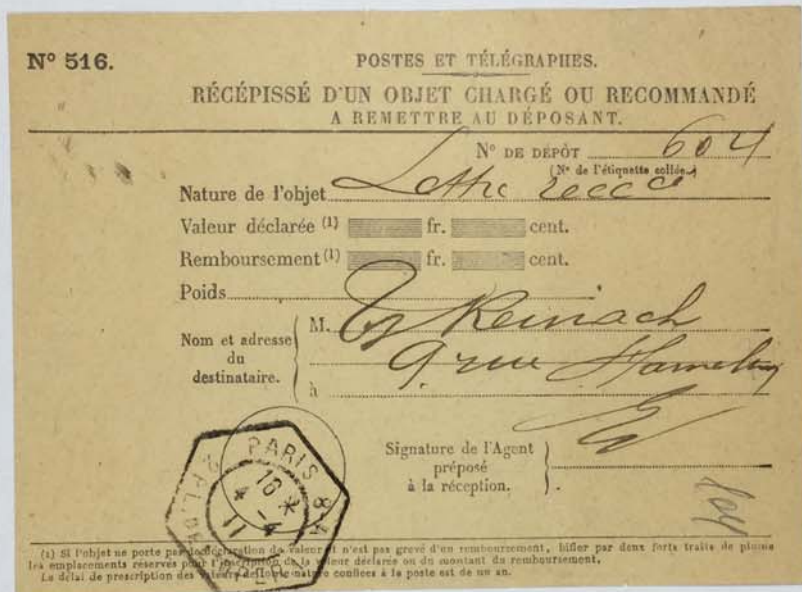 N° 516.
POSTES ET TÉLÉGRAPHES.
RÉCÉPISSÉ D'UN OBJET CHARGÉ OU RECOMMANDÉ
A REMETTRE AU DÉPOSANT.
N° DE DÉPÔT 604
(N° de l'étiquette collée.)
Nature de l'objet Lettre recée
Valeur déclarée (1) fr. cent.
Remboursement (1) fr. cent.
Poids
Nom et adresse du destinataire.
M. Reinach
9 rue Hamelin
à
Signature de l'Agent préposé à la réception.
PARIS 8
18 *
4 -4
11
2 PL.
(1) Si l'objet ne porte pas de déclaration de valeur et n'est pas grevé d'un remboursement, biffer par deux forts traits de plume
les emplacements réservés pour l'inscription de la valeur déclarée ou du montant du remboursement.
Le délai de prescription des valeurs de toute nature confiées à la poste est de un an.